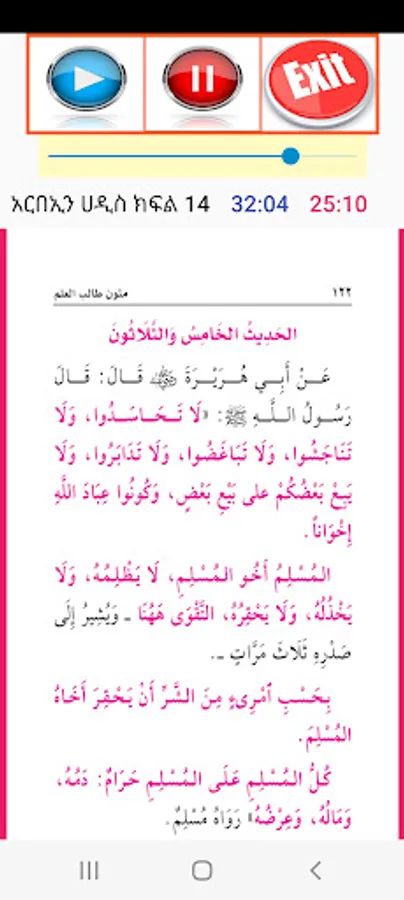 Exit
አርበኢን ሀዲስ ክፍል 14 32:04 25:10
١٢٢ متون طالب العلم
الحَدِيثُ الخَامِسُ وَالثَّلَاثُونَ
عَنْ أَبِي هُرَيْرَةَ ﵁ قَالَ: قَالَ
رَسُولُ اللَّهِ ﷺ: «لَا تَحَاسَدُوا، وَلَا
تَنَاجَشُوا، وَلَا تَبَاغَضُوا، وَلَا تَدَابَرُوا، وَلَا
يَبِعْ بَعْضُكُمْ عَلى بَيْعِ بَعْضٍ، وَكُونُوا عِبَادَ اللَّهِ
إِخْوَاناً.
المُسْلِمُ أَخُو المُسْلِمِ، لَا يَظْلِمُهُ، وَلَا
يَخْذُلُهُ، وَلَا يَحْقِرُهُ، التَّقْوَى هَهُنَا ـ وَيُشِيرُ إِلَى
صَدْرِهِ ثَلَاثَ مَرَّاتٍ ـ.
بِحَسْبِ ٱمْرِىءٍ مِنَ الشَّرِّ أَنْ يَحْقِرَ أَخَاهُ
المُسْلِمَ.
كُلُّ المُسْلِمِ عَلَى المُسْلِمِ حَرَامٌ: دَمُهُ،
وَمَالُهُ، وَعِرْضُهُ» رَوَاهُ مُسْلِمٌ.